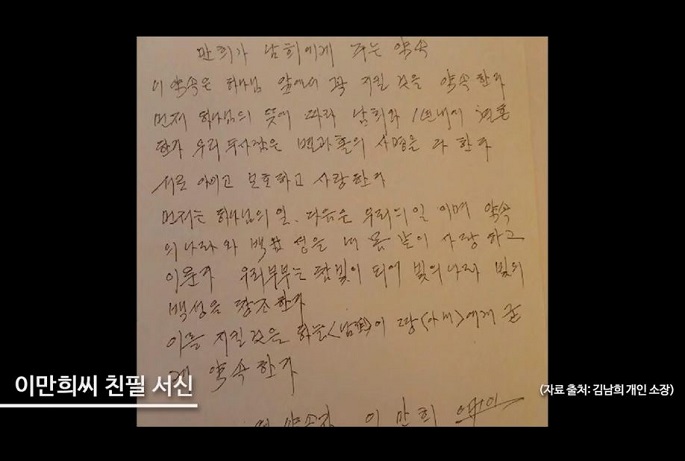 만희가 남희에게 주는 약속
이 약속은 하나님 앞에서 꼭 지킬 것을 약속한다
먼저 하나님의 뜻에 따라 남희와 1년내에 결혼
한다 우리 두사람은 벽과 돌의 사명을 다 한다
서로 아끼고 보호하고 사랑한다
먼저는 하나님의 일. 다음은 우리의 일 이며 약속
의 나라와 백성을 내 몸 같이 사랑 하고
이룬다 우리부부는 참빛이 되어 빛의 나라 빛의
백성을 창조한다
이를 지킬것은 하늘<남편>이 땅<아내>에게 굳
게 약속한다
이 만 희
이만희씨 친필 서신
(자료 출처: 김남희 개인 소장)